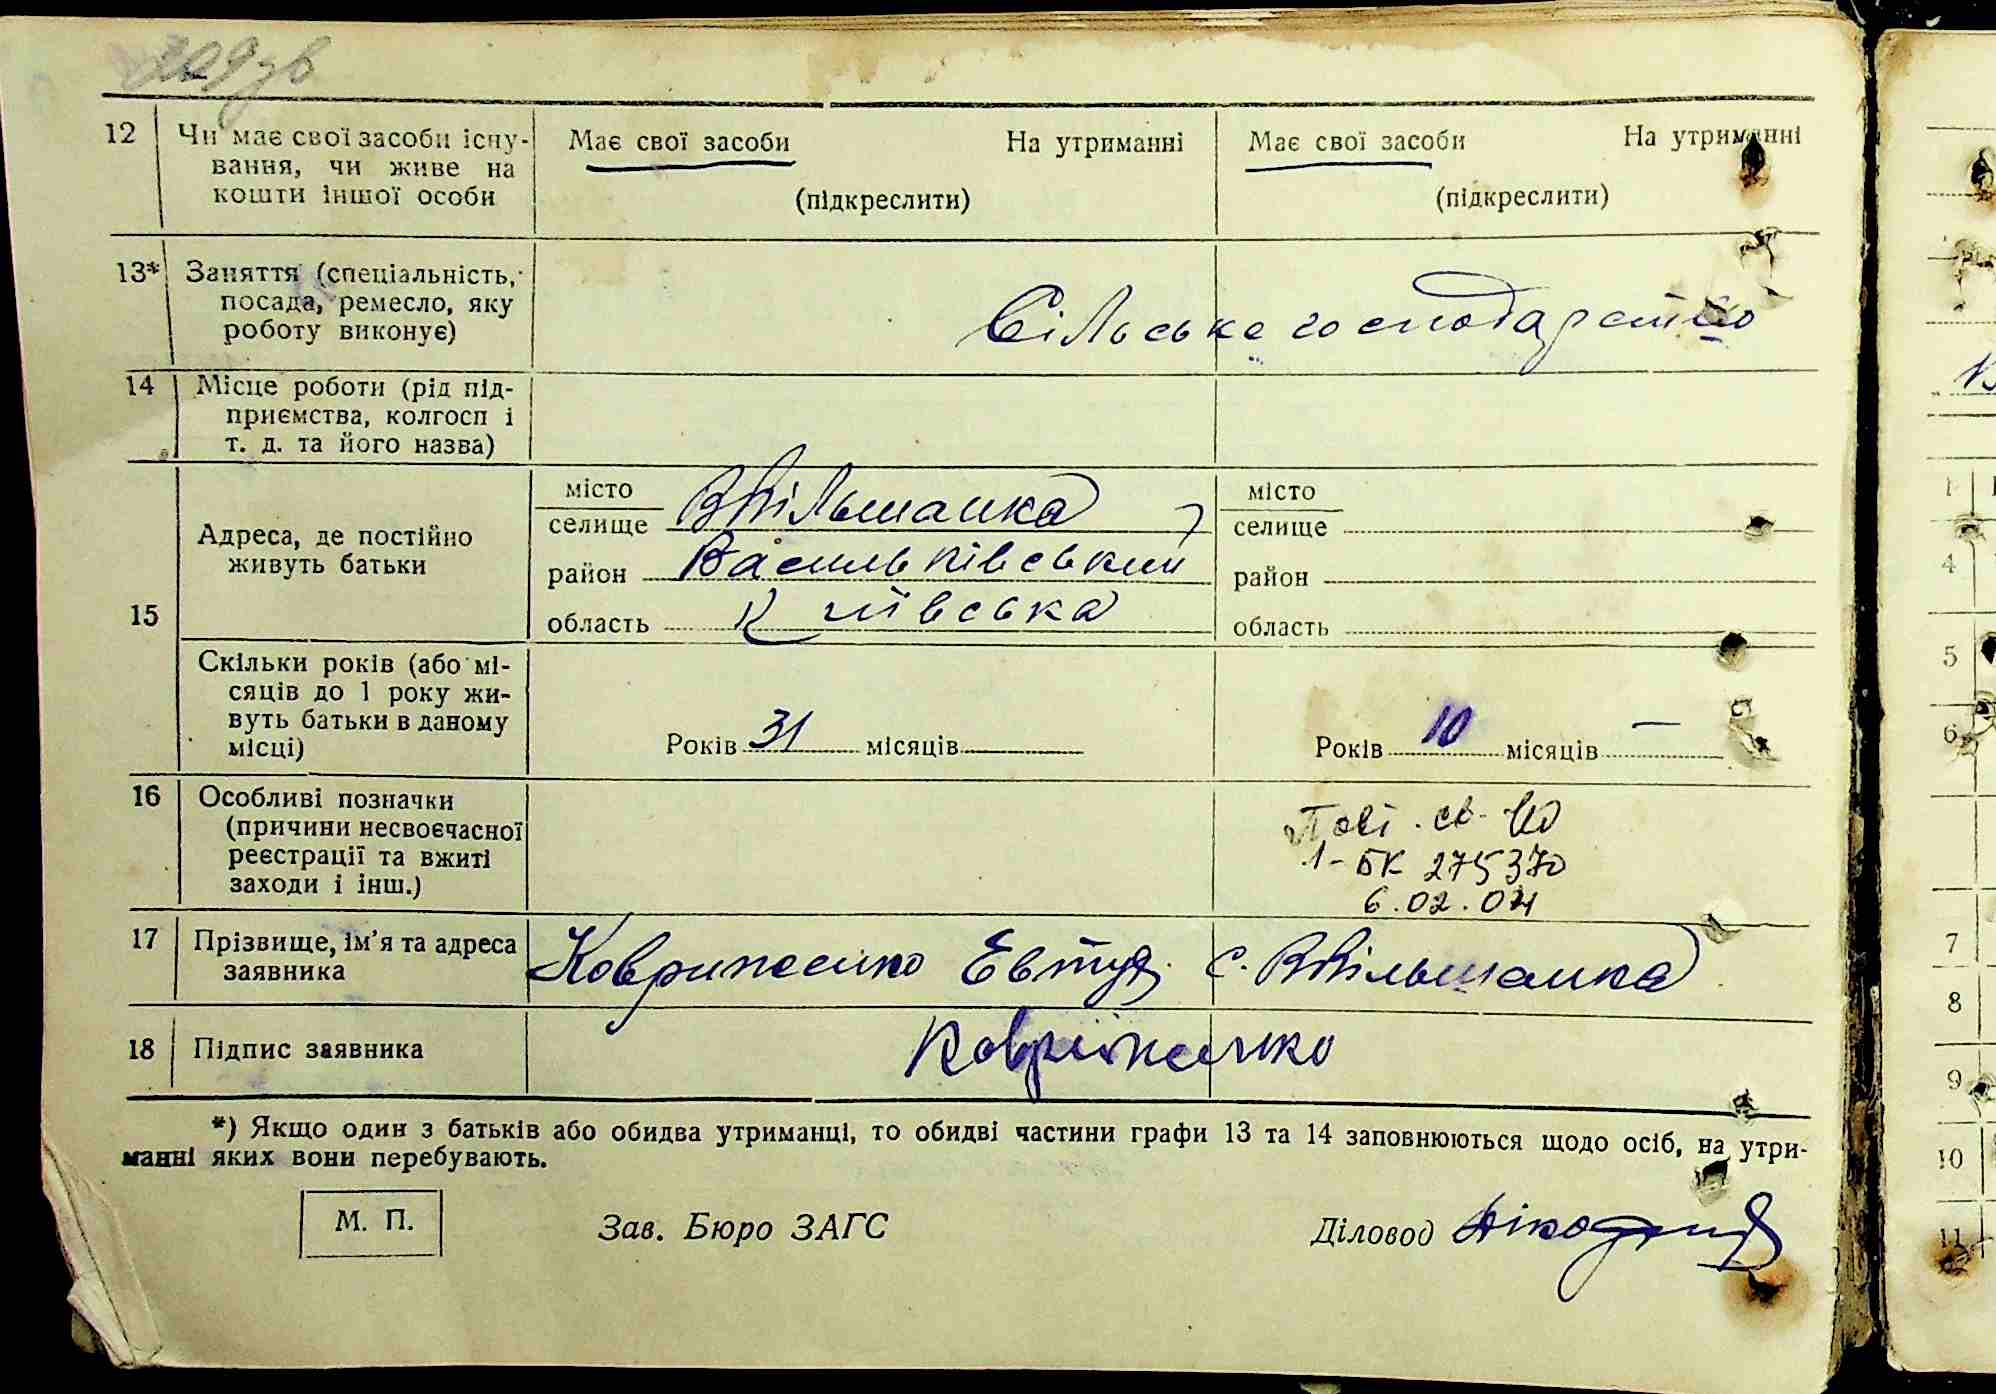 209зв
12 Чи має свої засоби існу- Має свої засоби На утриманні Має свої засоби На утриманні
вання, чи живе на
кошти іншої особи (підкреслити) (підкреслити)
13* Заняття (спеціальність,
посада, ремесло, яку Сільське господарство
роботу виконує)
14 Місце роботи (рід під-
приємства, колгосп і
т. д. та його назва)
15 Адреса, де постійно
живуть батьки
місто
селище ВВільшанка
район Васильківський
область Київська
місто
селище
район
область
Скільки років (або мі-
сяців до 1 року жи-
вуть батьки в даному
місці)
Років 31 місяців
Років 10 місяців —
16 Особливі позначки
(причини несвоєчасної
реєстрації та вжиті
заходи і інш.)
Повт. св-во
1-БК 275370
6.02.04
17 Прізвище, ім’я та адреса
заявника
Ковриженко Евтух. с. ВВільшанка
18 Підпис заявника Ковриженко
*) Якщо один з батьків або обидва утриманці, то обидві частини графи 13 та 14 заповнюються щодо осіб, на утри-
манні яких вони перебувають.
М. П. Зав. Бюро ЗАГС Діловод
4
5
6
7
8
9
10
11